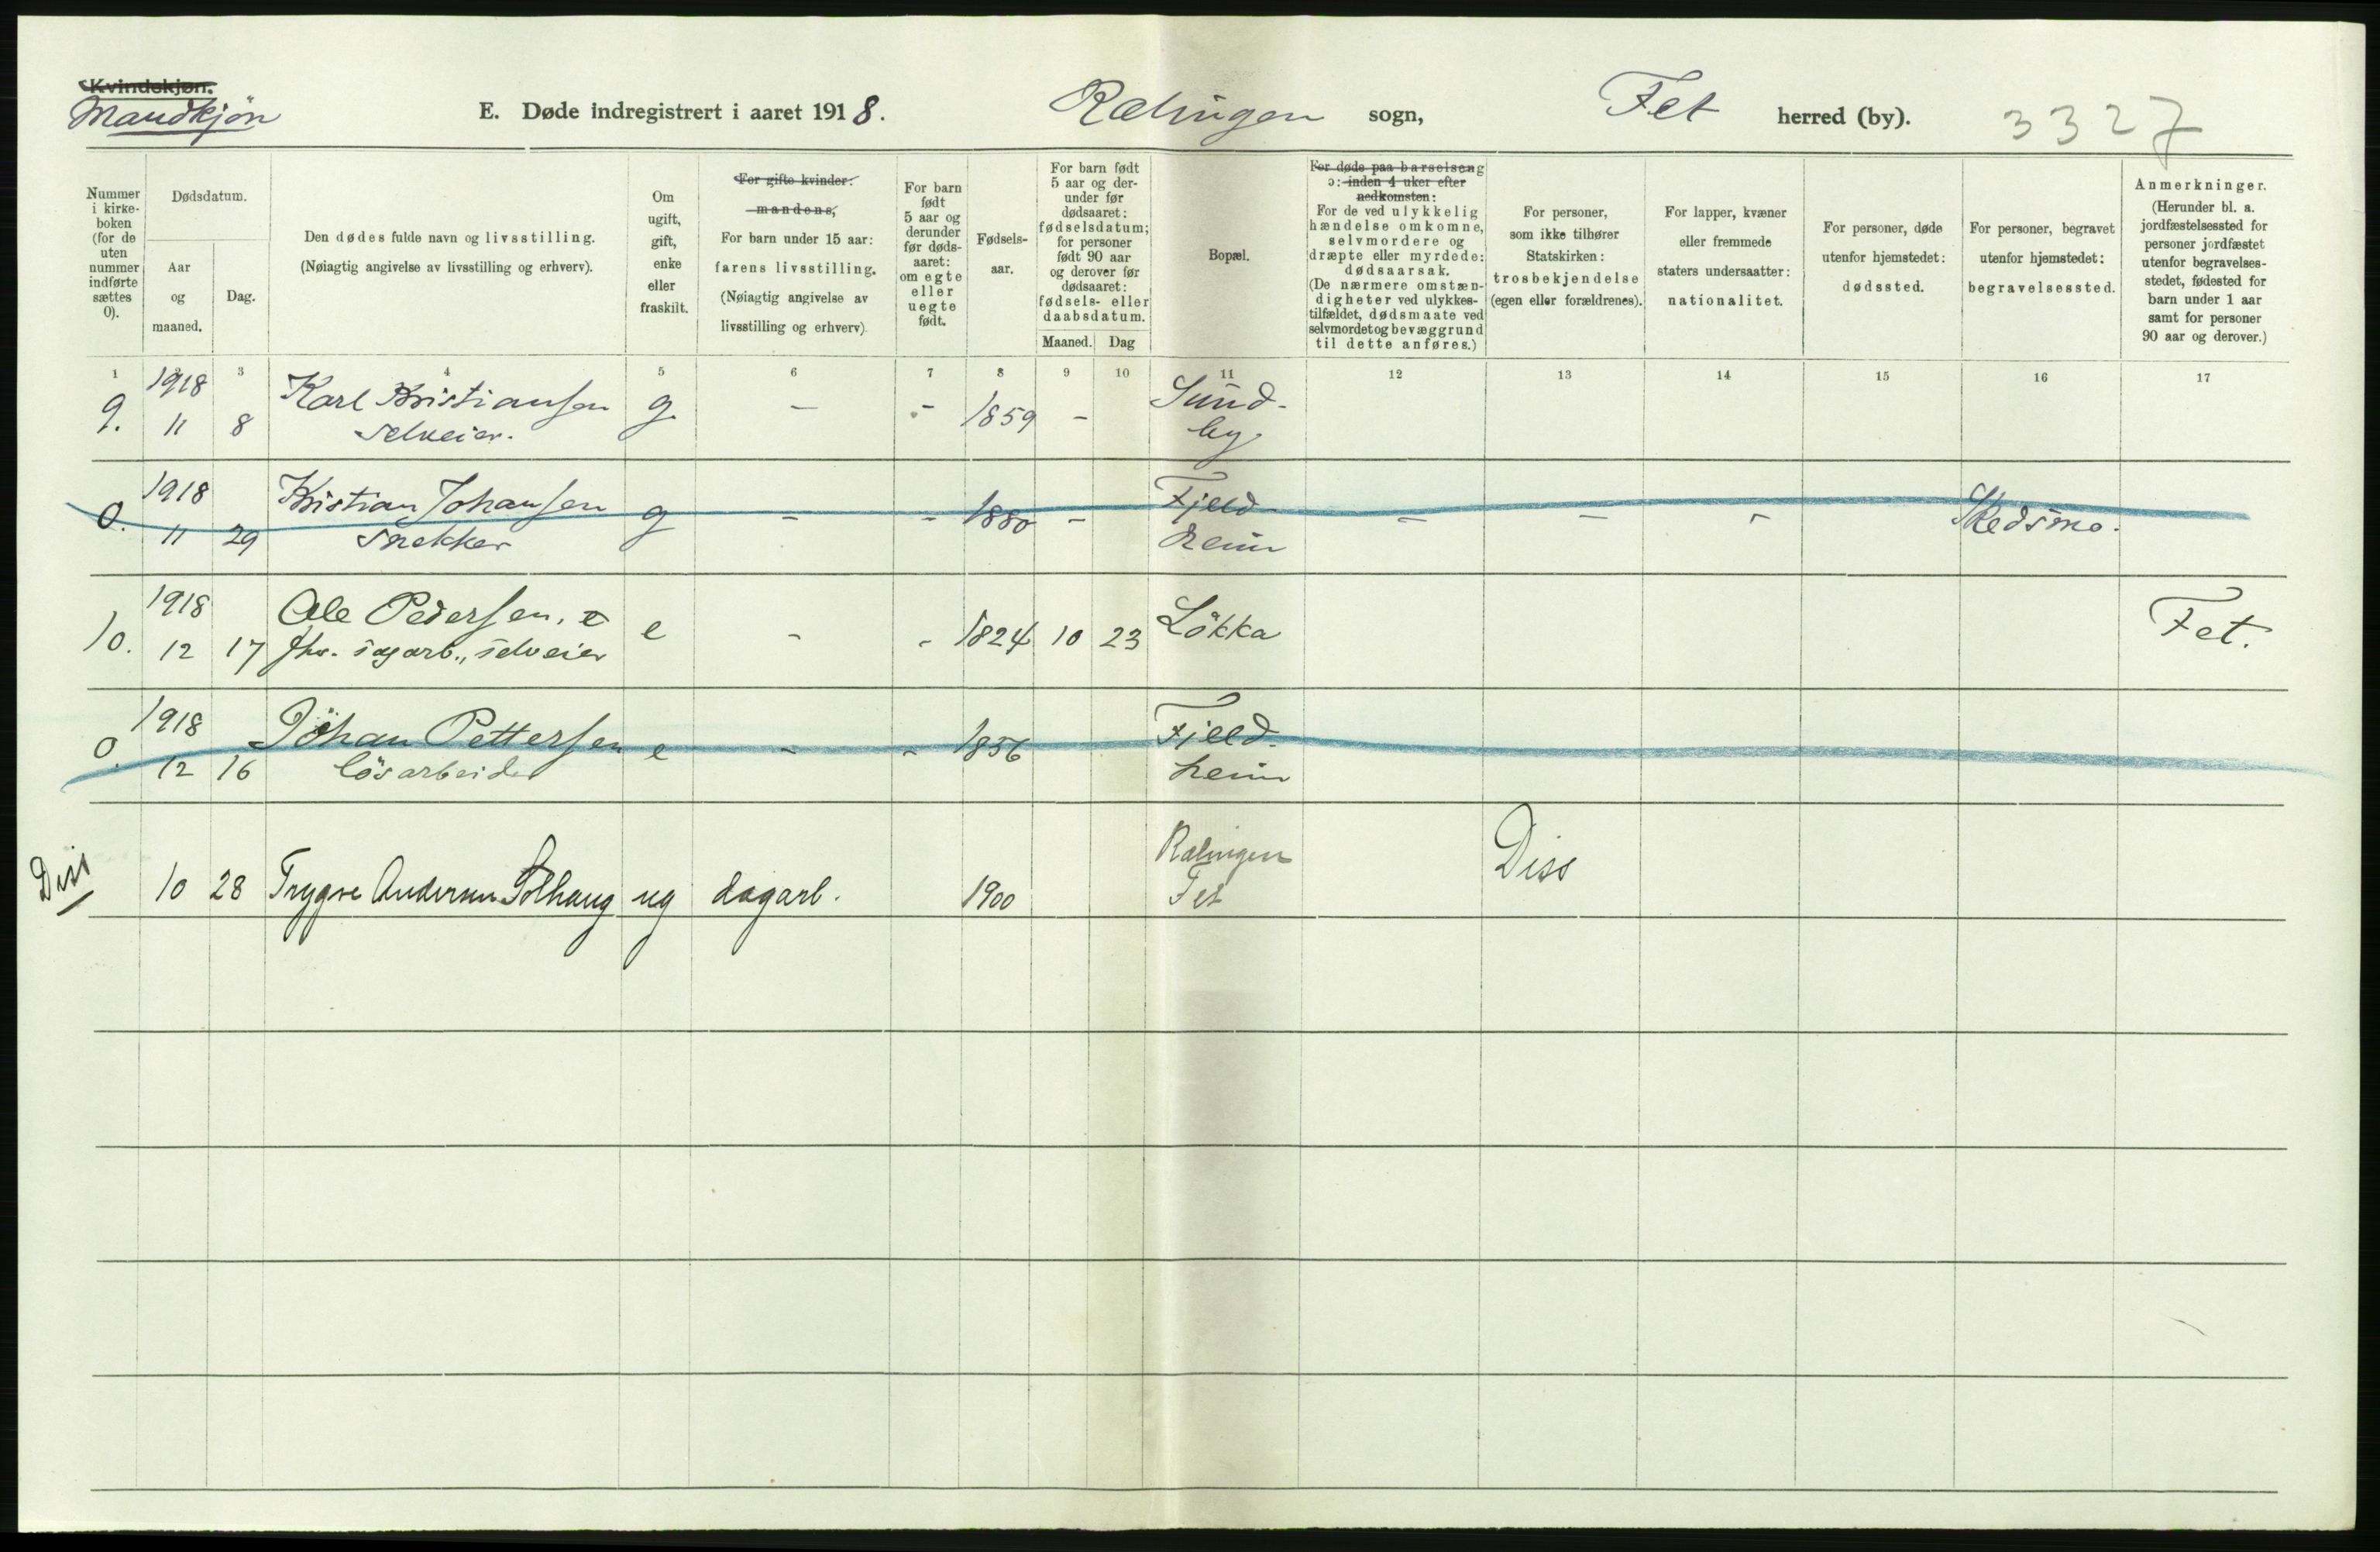 Kvindekjøn.
Mandkjön
E. Døde indregistrert i aaret 1918.
Rælingen sogn,
Fet herred (by).
3327
Nummer
i kirke-
boken
(for de
uten
nummer
indførte
sættes
0).
Dødsdatum.
Aar
og
maaned.
Dag.
Den dødes fulde navn og livsstilling.
(Nøiagtig angivelse av livsstilling og erhverv).
Om
ugift,
gift,
enke
eller
fraskilt.
For gifte kvinder:
mandens,
For barn under 15 aar:
farens livsstilling.
(Nøiagtig angivelse av
livsstilling og erhverv).
For barn
født
5 aar og
derunder
før døds-
aaret:
om egte
eller
uegte
født.
Fødsels-
aar.
For barn født
5 aar og der-
under før
dødsaaret:
fødselsdatum;
for personer
født 90 aar
og derover før
dødsaaret:
fødsels- eller
daabsdatum.
Maaned. Dag
Bopæl.
For døde paa barselseng
ɔ: inden 4 uker efter
nedkomsten:
For de ved ulykkelig
hændelse omkomne,
selvmordere og
dræpte eller myrdede:
dødsaarsak.
(De nærmere omstæn-
digheter ved ulykkes-
tilfældet, dødsmaate ved
selvmordet og bevæggrund
til dette anføres.)
For personer,
som ikke tilhører
Statskirken:
trosbekjendelse
(egen eller forældrenes).
For lapper, kvæner
eller fremmede
staters undersaatter:
nationalitet.
For personer, døde
utenfor hjemstedet:
dødssted.
For personer, begravet
utenfor hjemstedet:
begravelsessted.
Anmerkninger.
(Herunder bl. a.
jordfæstelsessted for
personer jordfæstet
utenfor begravelses-
stedet, fødested for
barn under 1 aar
samt for personer
90 aar og derover.)
1 2 3 4 5 6 7 8 9 10 11 12 13 14 15 16 17
1918 Karl Kristiansen g. – – 1859 – Sund-
9. 11 8 Selveier. by.
1918 Kristian Johansen g – – 1880 – Fjeld- – – – Skedsmo.
0. 11 29 Snekker heim
1918 Ole Pedersen, e – – 1824 10 23 Lökka Fet.
10. 12 17 fhv. sagarb., selveier
1918 Johan Pettersen e – – 1856 Fjeld-
0. 12 16 lösarbeider heim
Diss 10 28 Trygve Andersen Solhaug ug dagarb. 1900 Rælingen Diss
Fet